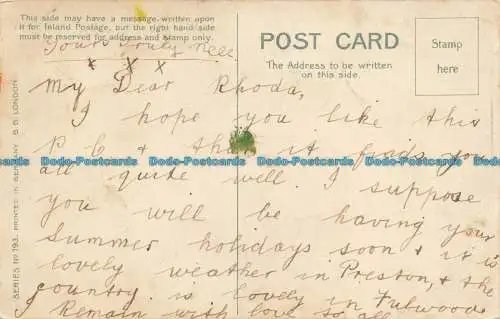 This side may have a message written upon
it for Inland Postage, but the right hand side
must be reserved for address and Stamp only.
Yours Truly Nell
x x x
POST CARD
The Address to be written
on this side.
Stamp
here
My Dear Rhoda,
I hope you like this
P C & that it finds you
all quite well. I suppose
you will be having your
Summer holidays soon & it is
lovely weather in Preston, & the
country is lovely in Fulwood
I Remain with love to all
SERIES No 193. PRINTED IN GERMANY. B B LONDON
Dodo-Postcards Dodo-Postcards Dodo-Postcards Dodo-Postcards
Dodo-Postcards Dodo-Postcards Dodo-Postcards Dodo-Postcards